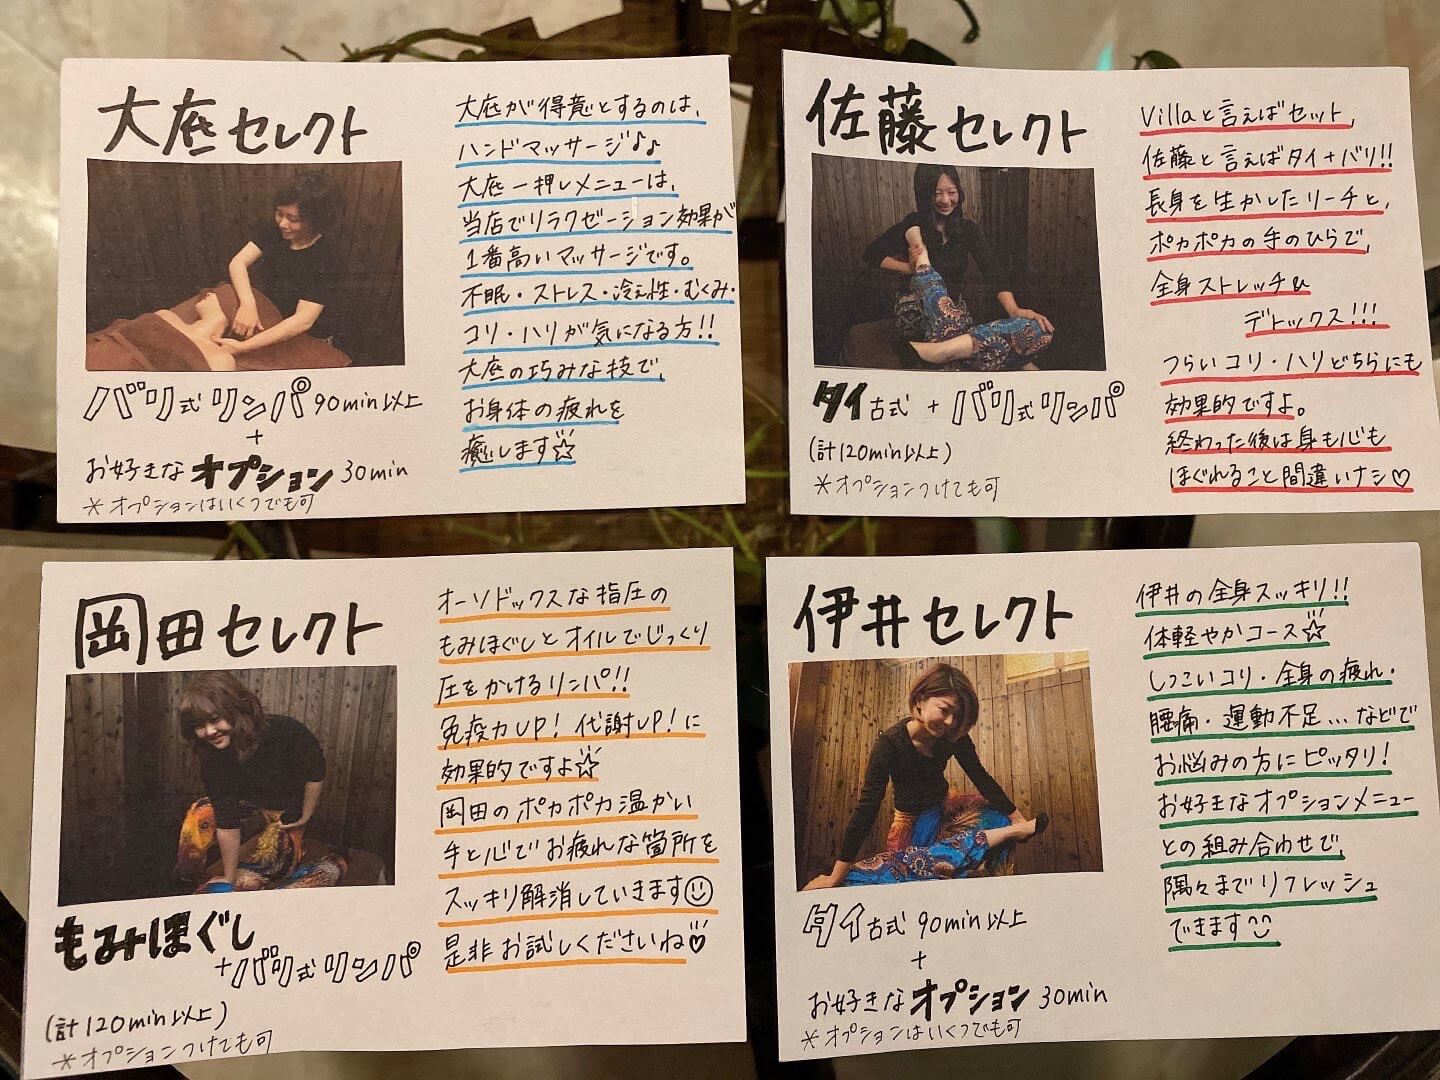 大庭セレクト
バリ式リンパ90min以上
+
お好きなオプション30min
*オプションはいくつでも可
大庭が得意とするのは、
ハンドマッサージ♪♪
大庭一押しメニューは、
当店でリラクゼーション効果が
1番高いマッサージです。
不眠・ストレス・冷え性・むくみ・
コリ・ハリが気になる方!!
大庭の巧みな技で、
お身体の疲れを
癒します☆
佐藤セレクト
タイ古式+バリ式リンパ
(計120min以上)
*オプションつけても可
Villaと言えばセット、
佐藤と言えばタイ+バリ!!
長身を生かしたリーチと、
ポカポカの手のひらで、
全身ストレッチ&
デトックス!!!
つらいコリ・ハリどちらにも
効果的ですよ。
終わった後は身も心も
ほぐれること間違いナシ♡
岡田セレクト
もみほぐし
+バリ式リンパ
(計120min以上)
*オプションつけても可
オーソドックスな指圧の
もみほぐしとオイルでじっくり
圧をかけるリンパ!!
免疫力UP!代謝UP!に
効果的ですよ☆
岡田のポカポカ温かい
手と心でお疲れな箇所を
スッキリ解消していきます☺
是非お試しくださいね♡
伊井セレクト
タイ古式90min以上
+
お好きなオプション30min
*オプションはいくつでも可
伊井の全身スッキリ!!
体軽やかコース☆
しつこいコリ・全身の疲れ・
腰痛・運動不足...などで
お悩みの方にピッタリ!
お好きなオプションメニュー
との組み合わせで、
隅々までリフレッシュ
できます